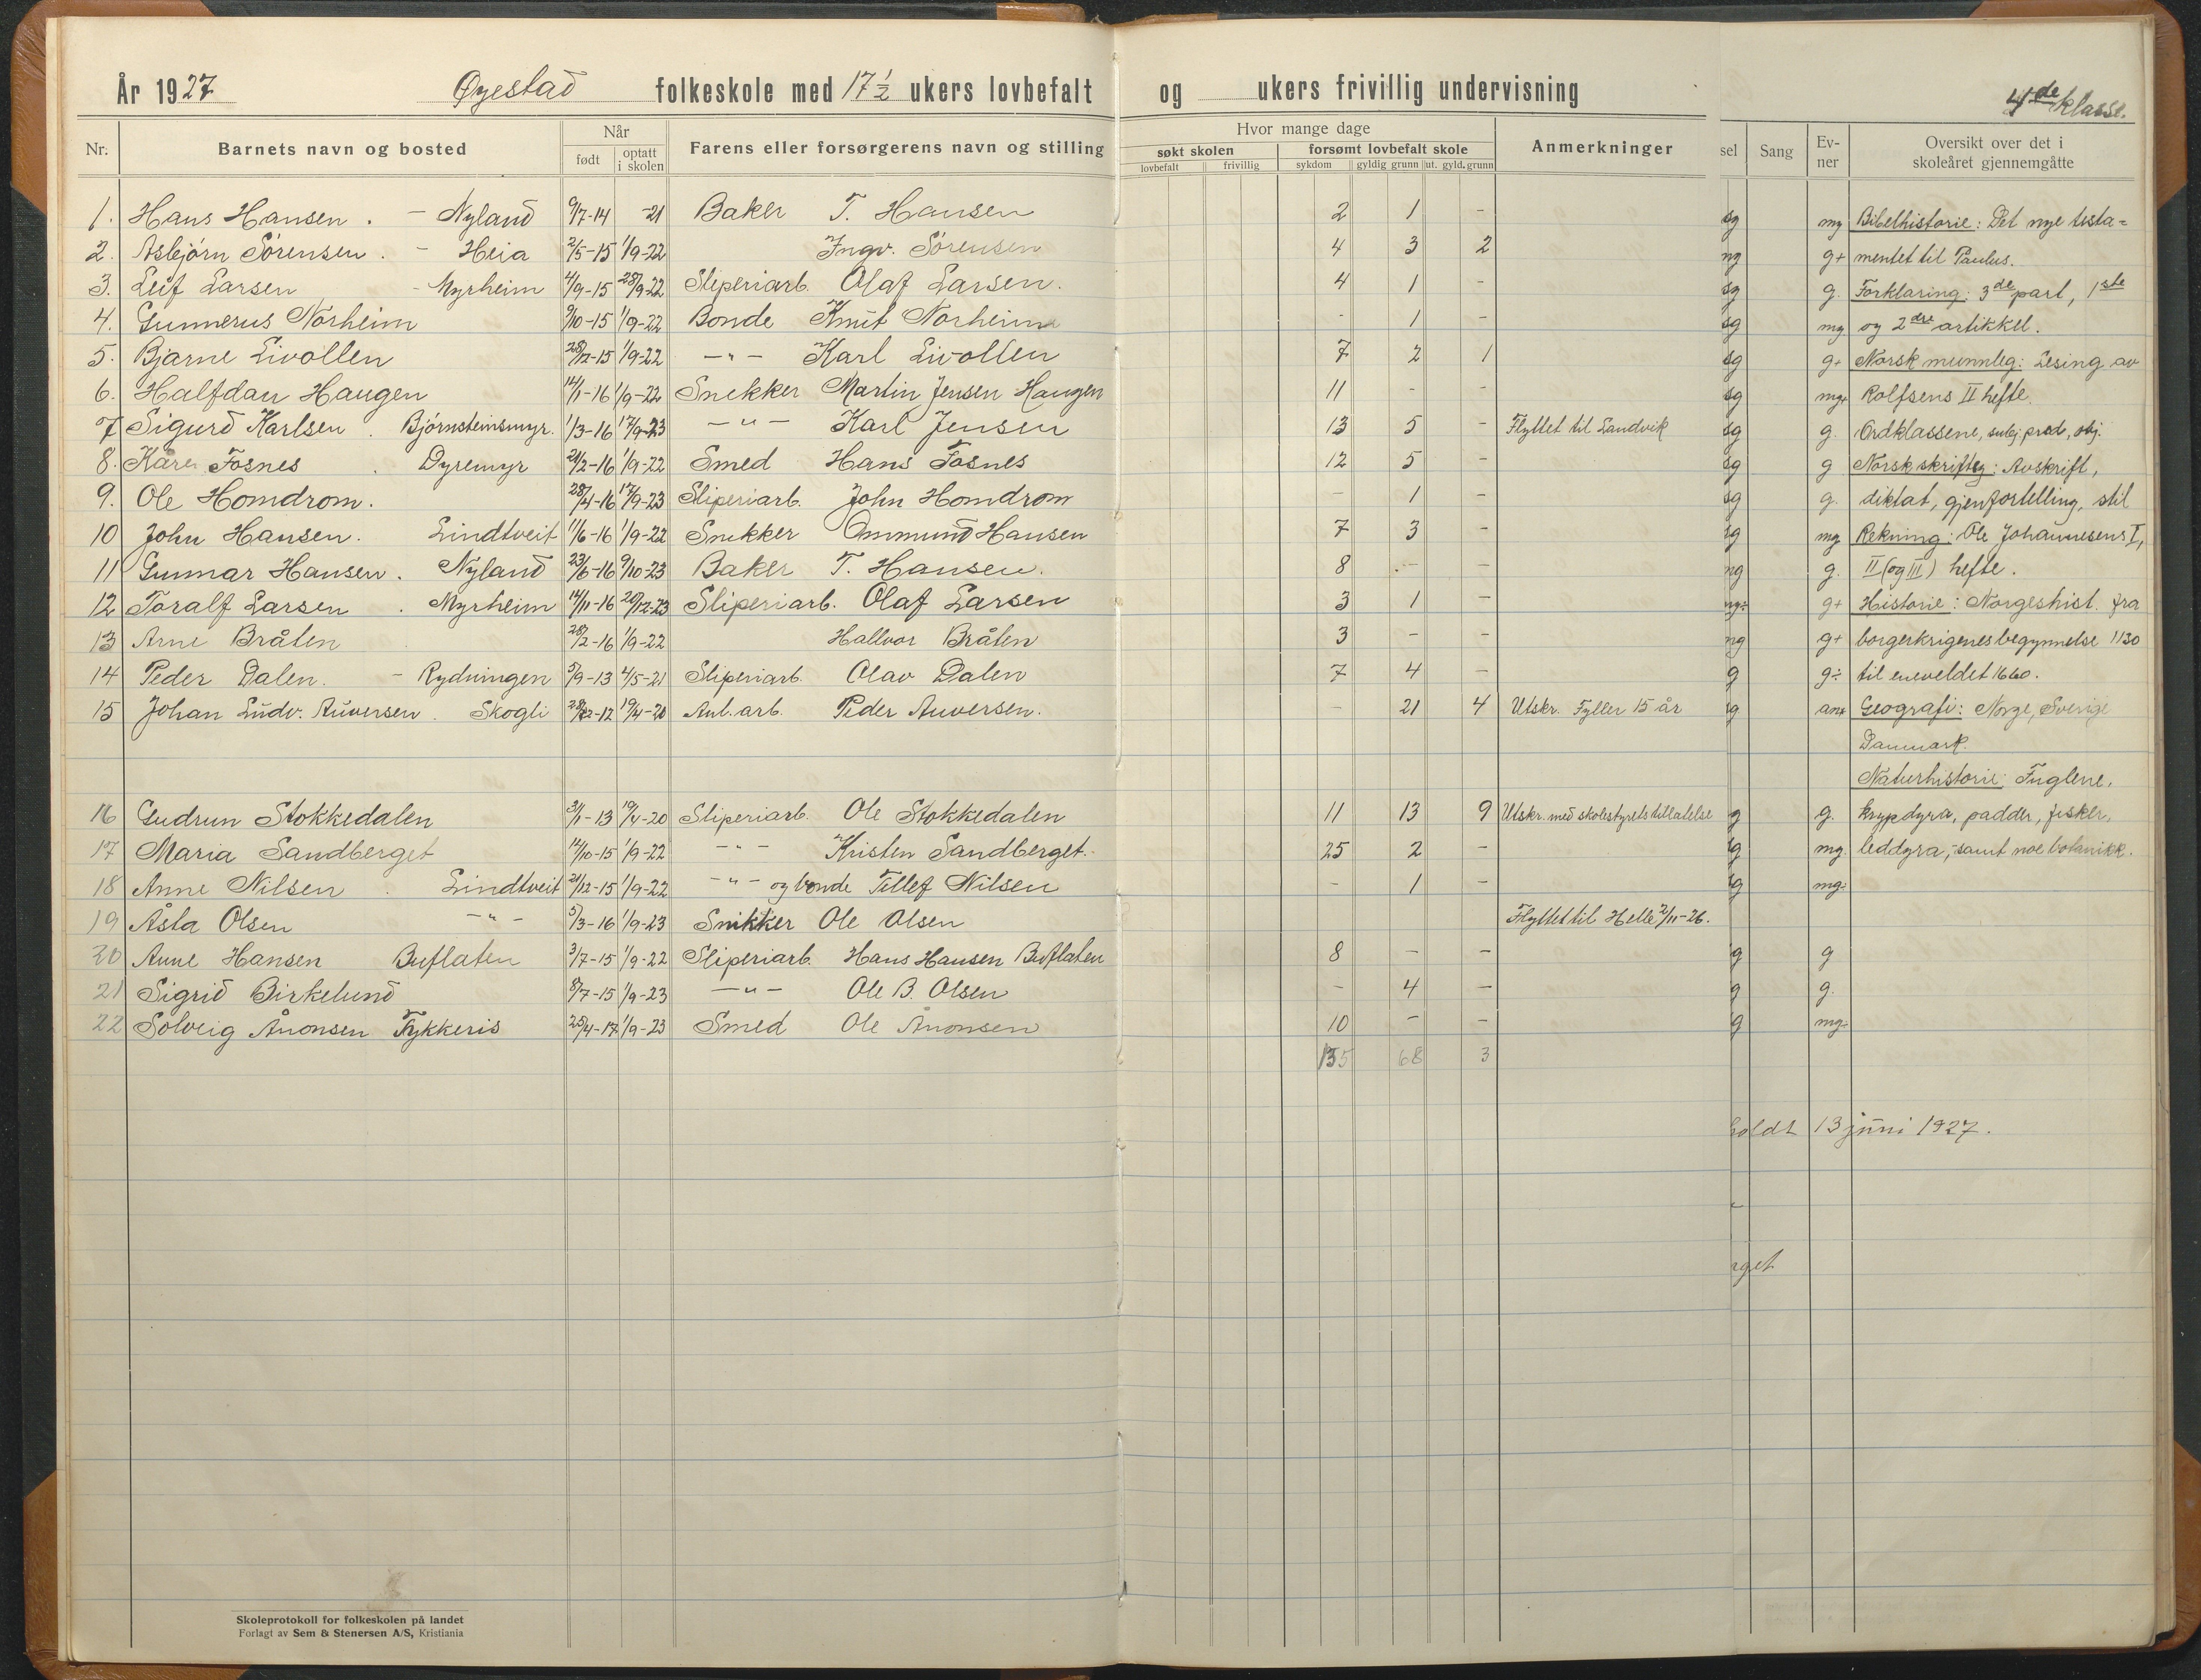 År 1927 Øyestad folkeskole med 17 1/2 ukers lovbefalt og ukers frivillig undervisning 4de klasse.
Nr. Barnets navn og bosted Når født optatt i skolen Farens eller forsørgerens navn og stilling Hvor mange dage søkt skolen lovbefalt frivillig forsømt lovbefalt skole sykdom gyldig grunn ut. gyld. grunn Anmerkninger sel Sang Evner Oversikt over det i skoleåret gjennemgåtte
1. Hans Hansen. - Nyland 9/7-14 -21 Baker T. Hansen 2 1 - sg mg Bibelhistorie: Det nye testa=
2. Asbjørn Sørensen. - Heia 2/5-15 1/9-22 Ingv. Sørensen 4 3 2 ng g+ mentet til Paulus.
3. Leif Larsen - Myrheim 4/9-15 28/9-22 Sliperiarb. Olaf Larsen. 4 1 - sg g. Forklaring: 3de part, 1ste
4. Gunnerus Norheim 9/10-15 1/9-22 Bonde Knut Norheim - 1 - sg mg og 2dre artikkel.
5. Bjarne Livollen 28/12-15 1/9-22 -"- Karl Livollen 7 2 1 sg g+ Norsk munnleg: Lesing av
6. Halfdan Haugen 14/1-16 1/9-22 Snekker Martin Jensen Haugen 11 - - sg mg+ Rolfsens II hefte.
7 Sigurd Karlsen. Bjørnsteinsmyr. 1/3-16 17/9-23 -"- Karl Jensen 13 5 - Flyttet til Landvik sg g. Ordklassene, subj. pred, obj.
8. Kåre Fosnes. Dyremyr 21/2-16 1/9-22 Smed Hans Fosnes 12 5 - sg g Norsk skriftleg: Avskrift,
9. Ole Homdrom. 28/4-16 17/9-23 Sliperiarb. John Homdrom - 1 - sg g. diktat, gjenfortelling, stil
10 John Hansen. Lindtveit 11/6-16 1/9-22 Snekker Ommund Hansen 7 3 - sg mg Rekning: Ole Johannesens I,
11 Gunnar Hansen. Nyland 23/6-16 9/10-23 Baker T. Hansen. 8 - - ng g. II (og III) hefte.
12 Toralf Larsen. Myrheim 14/11-16 20/12-23 Sliperiarb. Olaf Larsen 3 1 - ng÷ g+ Historie: Norgeshist. fra
13 Arne Bråten 28/2-16 1/9-22 Hallvor Bråten 3 - - ng g+ borgerkrigenes begynnelse 1130
14 Peder Dalen. - Rydningen 5/9-13 4/5-21 Sliperiarb. Olav Dalen 7 4 - g g÷ til eneveldet 1660.
15 Johan Ludv. Auversen. Skogli 28/12-12 19/4-20 Anl. arb. Peder Auversen. - 21 4 Utskr. Fyller 15 år g Geografi: Norge, Sverige
Danmark.
Naturhistorie: Fuglene,
16 Gudrun Stokkedalen 31/1-13 19/4-20 Sliperiarb. Ole Stokkedalen 11 13 9 Utskr. med skolestyrets tillatelse g g. krypdyra, padder, fisker,
17 Maria Sandberget 12/10-15 1/9-22 -"- Kristen Sandberget. 25 2 - g mg. leddyra, samt noe botanikk.
18 Anne Nilsen. Lindtveit 21/12-15 1/9-22 -"- og bonde Tellef Nilsen - 1 - g mg÷
19 Åsta Olsen -"- 5/3-16 1/9-23 Snikker Ole Olsen Flyttet til Helle 2/11-26.
20 Anne Hansen Buflaten 3/7-15 1/9-22 Sliperiarb. Hans Hansen Buflaten 8 - - g g
21 Sigrid Birkelund 8/7-15 1/9-23 -"- Ole B. Olsen - 4 - g g.
22 Solveig Ånonsen Fykkeris 25/4-17 1/9-23 Smed Ole Ånonsen 10 - - g mg÷
135 68 3
holdt 13 juni 1927.
rget
Skoleprotokoll for folkeskolen på landet
Forlagt av Sem & Stenersen A/S, Kristiania